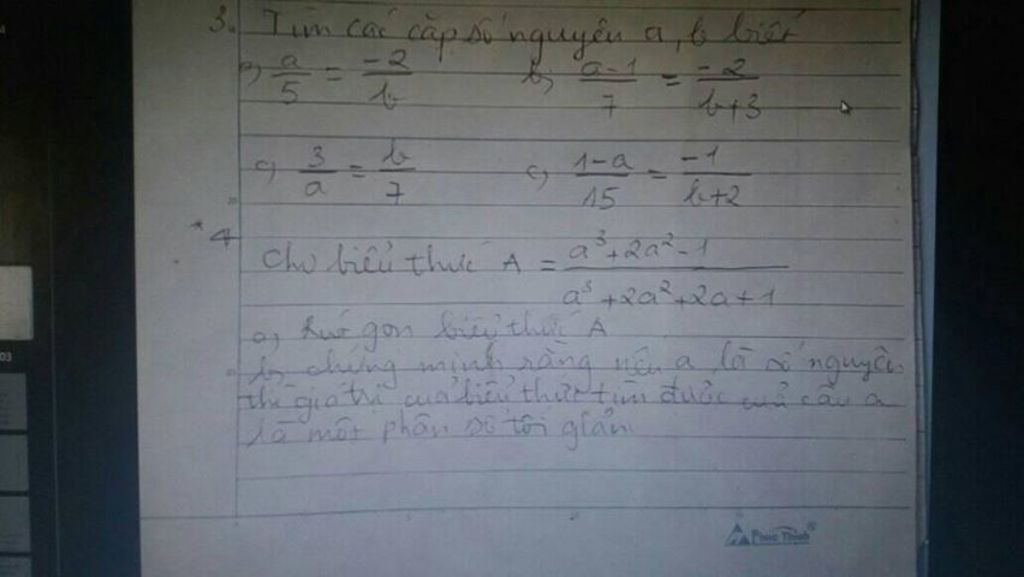 3. Tìm các cặp số nguyên a, b biết
a) a/5 = -2/b b) a-1/7 = -2/b+3
c) 3/a = b/7 c) 1-a/15 = -1/b+2
*4
Cho biểu thức A = a³+2a²-1/a³+2a²+2a+1
a) Rút gọn biểu thức A
b) chứng minh rằng nếu a là số nguyên
thì giá trị của biểu thức tìm được của câu a
là một phân số tối giản.
Phúc Thịnh®
03